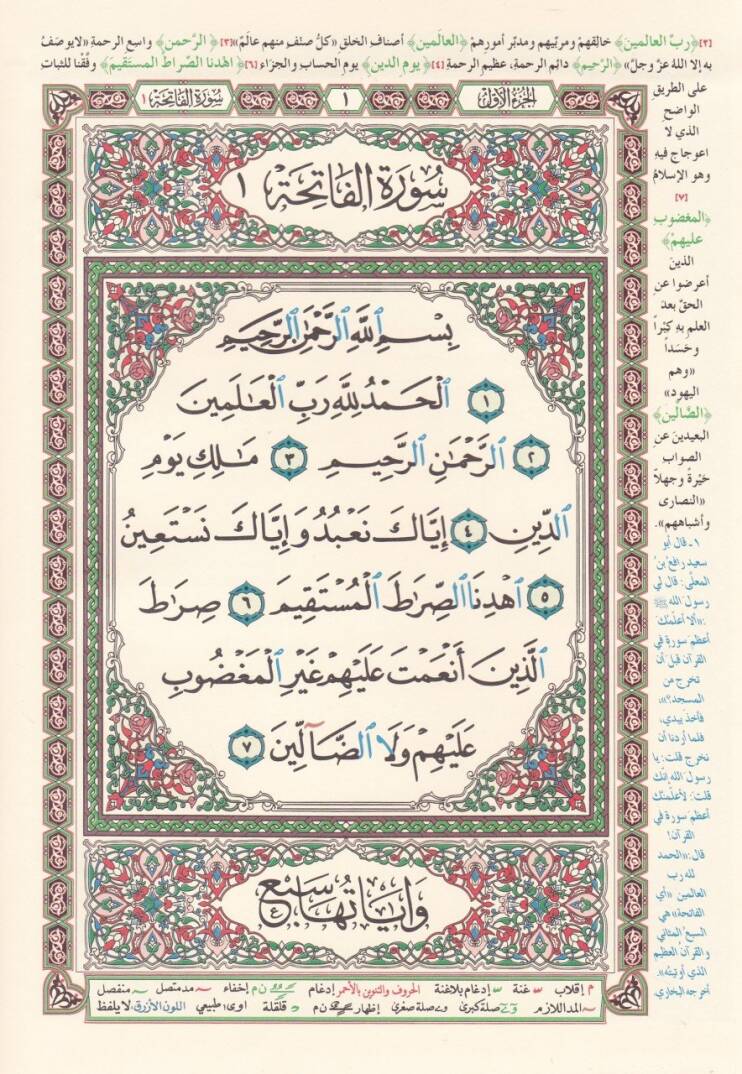 [٢]﴿رَبِّ العالمينَ﴾ خالِقِهمْ ومربّيهم ومدبّر أمورِهمْ ﴿العالَمين﴾ أصنافِ الخلقِ «كلُّ صنْف منهم عالَمٌ» [٣]﴿الرَّحمنِ﴾ واسعِ الرحمةِ «لا يوصَفُ
بهِ إلا اللهُ عزَّ وجلَّ» ﴿الرّحيم﴾ دائمِ الرحمةِ، عظيمِ الرحمةِ [٤]﴿يوم الدين﴾ يومِ الحسابِ والجزاء [٦]﴿اهدنا الصِّراط المستقيمَ﴾ وفِّقْنا للثباتِ
على الطريقِ
الواضحِ
الذي لا
اعوجاج فيهِ
وهو الإسلامُ
[٧]
﴿المغضوبِ
عليهمْ﴾
الذينَ
أعرضوا عنِ
الحقِّ بعدَ
العلمِ بهِ كبْراً
وحَسَداً
«وهم
اليهود»
﴿الضّالين﴾
البعيدينَ عنِ
الصواب
حَيْرةً وجهلاً
«النصارى
وأشباههم».
١ـ قال أبو
سعيد رافعُ بنُ
المعلّى: قال لي
رسول الله ﷺ
:«ألا أعلّمُكَ
أعظمَ سورةٍ في
القرآن قبل أن
تخرج من
المسجد؟»،
فأخذ بيدي،
فلما أردنا أن
نخرج قلت: يا
رسول الله إنك
قلت: لأعلّمنّك
أعظمَ سورة في
القرآن!
قال:«الحمد
لله رب
العالمين «أي
الفاتحة» هي
السبع المثاني
والقرآن العظيم
الذي أوتيتُه».
أخرجه البخاري.
الجُزءُ الأَوَّلُ ١ سُورَةُ الفَاتِحَةِ ١
سُورَةُ الفَاتِحَةِ ١
بِسْمِ ٱللَّهِ ٱلرَّحْمَٰنِ ٱلرَّحِيمِ
١ ٱلْحَمْدُ لِلَّهِ رَبِّ ٱلْعَٰلَمِينَ
٢ ٱلرَّحْمَٰنِ ٱلرَّحِيمِ ٣ مَٰلِكِ يَوْمِ
ٱلدِّينِ ٤ إِيَّاكَ نَعْبُدُ وَإِيَّاكَ نَسْتَعِينُ
٥ ٱهْدِنَا ٱلصِّرَٰطَ ٱلْمُسْتَقِيمَ ٦ صِرَٰطَ
ٱلَّذِينَ أَنْعَمْتَ عَلَيْهِمْ غَيْرِ ٱلْمَغْضُوبِ
عَلَيْهِمْ وَلَا ٱلضَّآلِّينَ ٧
وَآيَاتُهَا سَبْعٌ
م إقلاب غنة إدغام بلاغنة الحروف والتنوين بالأحمر إدغام ن م إخفاء مد متصل منفصل
المد اللازم صلة كبرى صلة صغرى إظهار ن م قلقلة اوى، طبيعي اللون الأزرق لا يلفظ